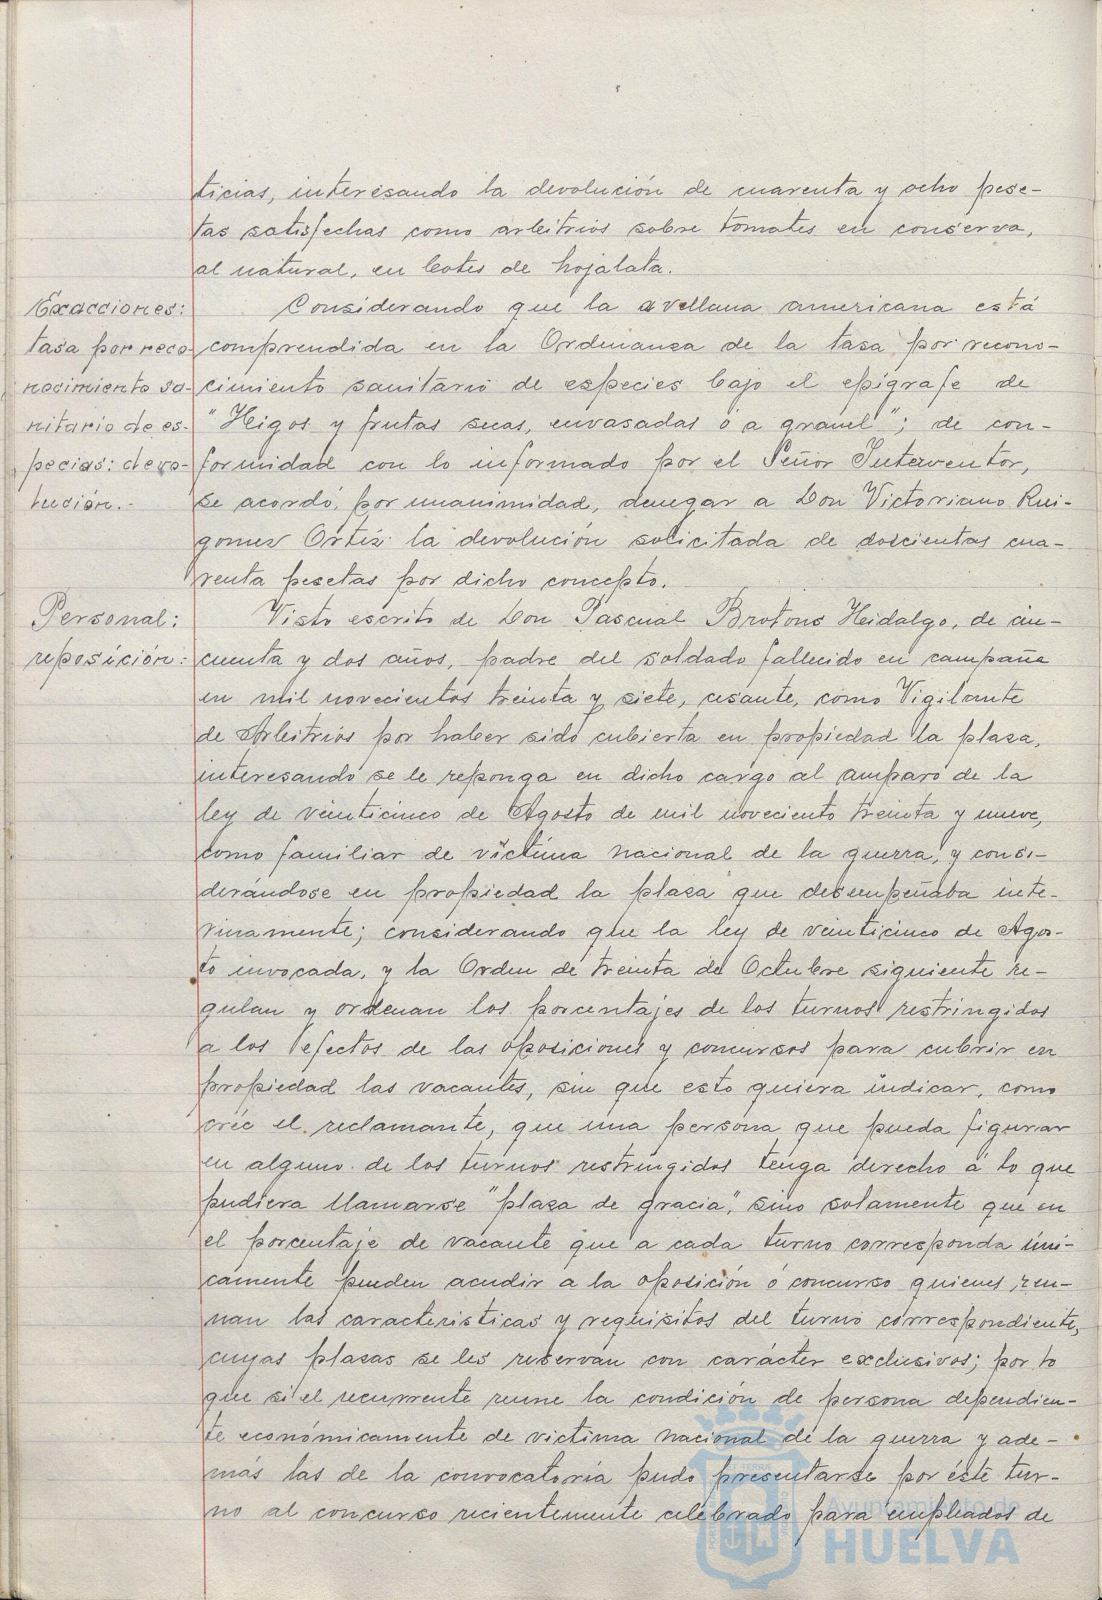 ticias, interesando la devolución de cuarenta y ocho pese-
tas satisfechas como arbitrios sobre tomates en conserva,
al natural, en botes de hojalata.
Exacciones:
tasa por reco-
nocimiento sa-
nitario de es-
pecias: devo-
lución.-
Considerando que la avellana americana está
comprendida en la Ordenanza de la tasa por recono-
cimiento sanitario de especies bajo el epígrafe de
"Higos y frutas secas, envasadas ó a granel"; de con-
formidad con lo informado por el Señor Interventor,
se acordó, por unanimidad, denegar a Don Victoriano Rui-
gomez Ortiz la devolución solicitada de doscientas cua-
renta pesetas por dicho concepto.
Personal:
reposición:
Visto escrito de Don Pascual Brotons Hidalgo, de cin-
cuenta y dos años, padre del soldado fallecido en campaña
en mil novecientos treinta y siete, cesante, como Vigilante
de Arbitrios por haber sido cubierta en propiedad la plaza,
interesando se le reponga en dicho cargo al amparo de la
ley de veinticinco de Agosto de mil noveciento treinta y nueve,
como familiar de víctima nacional de la guerra, y consi-
derándose en propiedad la plaza que desempeñaba inte-
rinamente; considerando que la ley de veinticinco de Agos-
to invocada, y la Orden de treinta de Octubre siguiente re-
gulan y ordenan los porcentajes de los turnos restringidos
a los efectos de las oposiciones y concursos para cubrir en
propiedad las vacantes, sin que esto quiera indicar, como
crée el reclamante, que una persona que pueda figurar
en alguno de los turnos restringidos tenga derecho á lo que
pudiera llamarse "plaza de gracia", sino solamente que en
el porcentaje de vacante que a cada turno corresponda úni-
camente pueden acudir a la oposición ó concurso quienes reu-
nan las caracteristicas y requisitos del turno correspondiente,
cuyas plazas se les reservan con carácter exclusivos; por lo
que si el recurrente reune la condición de persona dependien-
te económicamente de victima nacional de la guerra y ade-
más las de la convocatoria pudo presentarse por éste tur-
no al concurso recientemente celebrado para empleados de
Ayuntamiento de
HUELVA